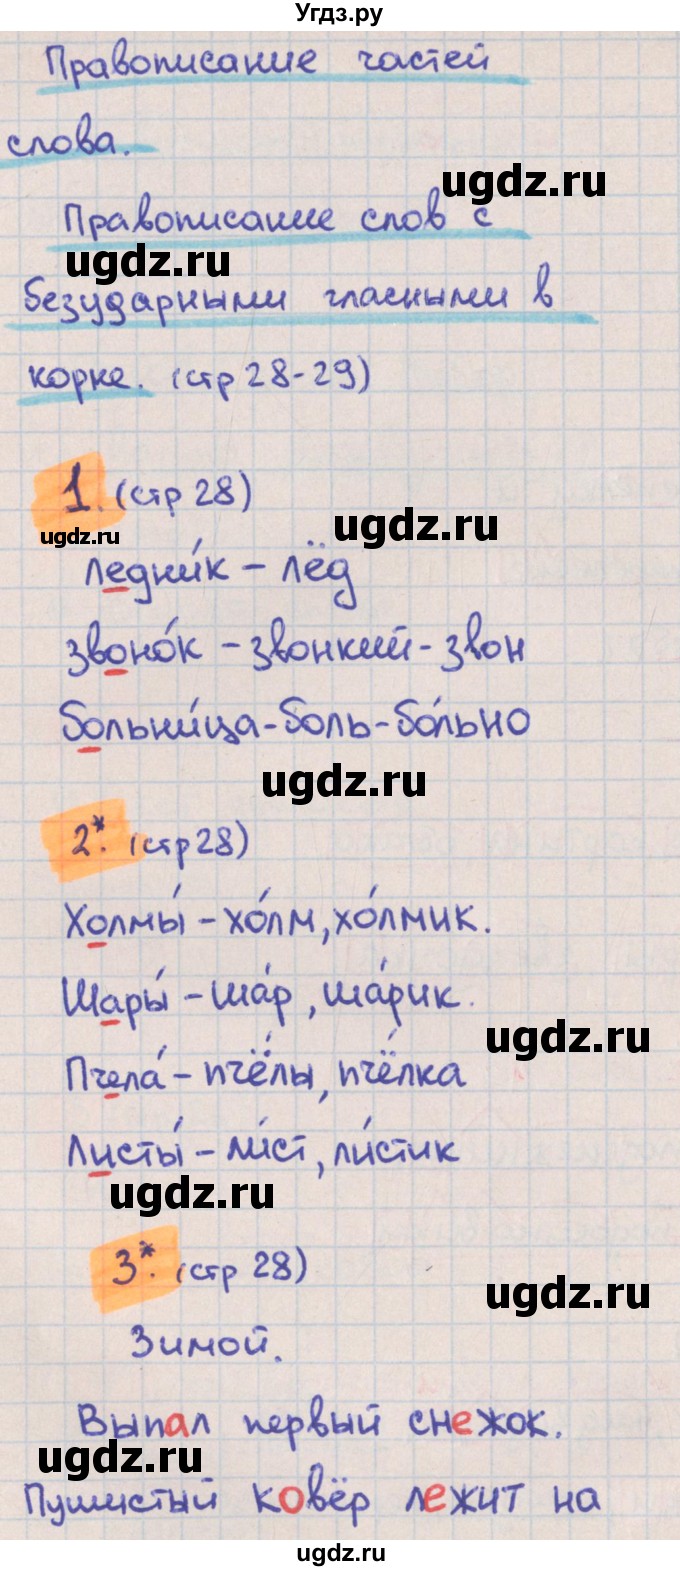 Угдз.ру
Правописание частей
слова.
ugdz.ru
Правописание слов с
ugdz.ru
безударными гласными в
корне. (стр 28-29)
1. (стр 28)
ugdz.ru
ugdz.ru
ледни́к – лёд
звоно́к – звонкий - звон
больни́ца - боль - бо́льно
ugdz.ru
2*. (стр 28)
Холмы́ – хо́лм, хо́лмик.
Шары́ – ша́р, ша́рик.
ugdz.ru
Пчела́ – пчёлы, пчёлка
Листы́ – ли́ст, ли́стик
ugdz.ru
3*. (стр 28)
ugdz.ru
Зимой.
Выпал первый снежок.
ugdz.ru
Пушистый ковёр лежит на
ugdz.ru